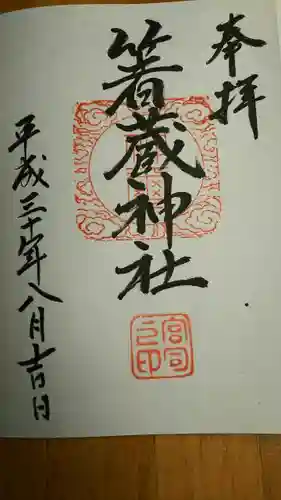 奉拝
箸蔵神社
平成三十年八月吉日
宮司之印